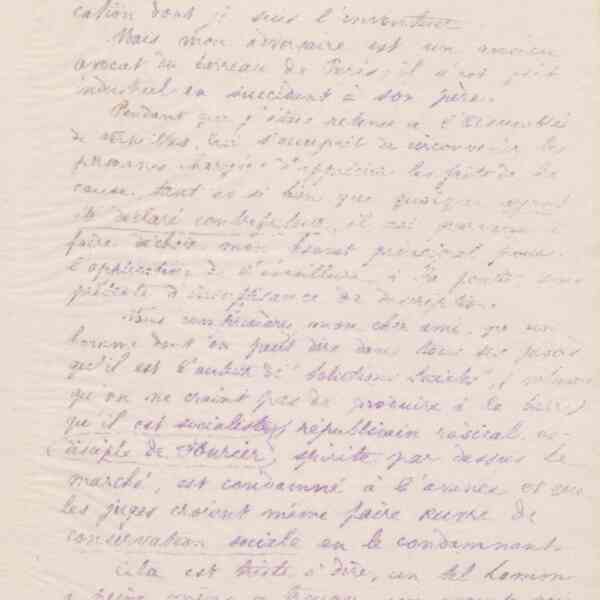 cation dont je suis l'inventeur
Mais mon adversaire est un ancien
avocat du barreau de Paris, il s'est fait
industriel en succédant à son père.
Pendant que j'étais retenu à l'Assemblée
de Versailles, lui s'occupait de circonvenir les
personnes chargées d'apprécier les faits de la
cause, tant et si bien que quoique ayant
été déclaré contrefacteur, il est parvenu à
faire déchoir mon brevet principal pour
l'application de à la fonte sous
prétexte d'insuffisance de description.
Vous comprendrez, mon cher ami, qu'un
homme dont on peut dire dans tous ses procès
qu'il est l'auteur de "Solutions Sociales", (volume
qu'on ne craint pas de produire à la barre)
qu'il est socialiste, républicain radical,
disciple de Fourier, spirite par dessus le
marché, est condamné à l'avance et que
les juges croient même faire œuvre de
conservation sociale en le condamnant.
Cela est triste à dire, un tel homme
a peine même à trouver un avocat